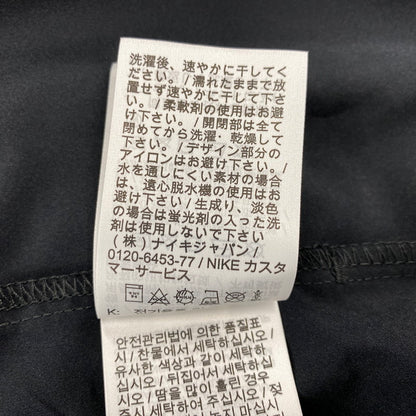 洗濯後、速やかに干してく
ださい。/ 濡れたままで放
置せず速やかに干して下さ
い。/ 柔軟剤の使用はお避
け下さい。/ 開閉部は全て
閉めてから洗濯・乾燥して
下さい。/ デザイン部分の
アイロンはお避け下さい。/
水を通しにくい素材の場合
は、遠心脱水機の使用はお
避け下さい / 生成り、淡色
の場合は蛍光剤の入った洗
剤は使用しないで下さい
/ (株) ナイキジャパン /
0120-6453-77 / NIKE カスタ
マーサービス
K:
안전관리법에 의한 품질표
시 / 찬물에서 세탁하십시오 /
유사한 색상과 같이 세탁하
십시오 / 뒤집어서 세탁하십
시오 / 땀을 많이 흘린 경우